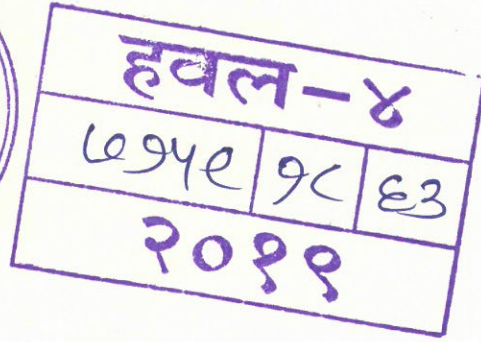 हवल-४
७१५९ १८ ६३
२०१९